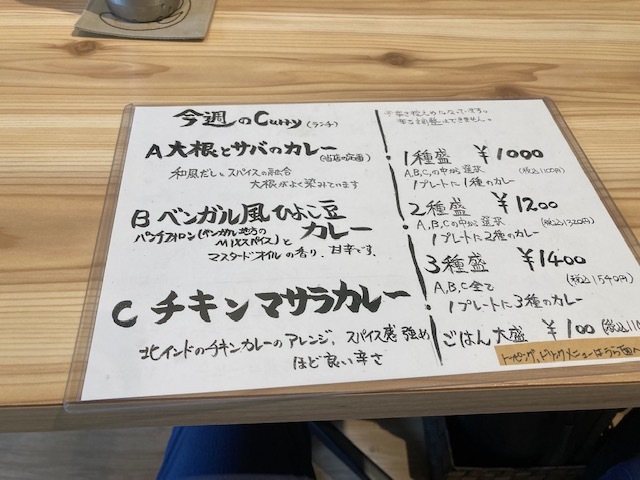 今週のCurry(ランチ)
A 大根とサバのカレー
(当店の定番)
和風だしとスパイスの融合
大根がよく染みています
B ベンガル風ひよこ豆
カレー
パンチフォロン(ベンガル地方の
MIXスパイス)と
マスタードオイルの香り、甘辛です。
C チキンマサラカレー
北インドのチキンカレーのアレンジ、スパイス感強め
ほど良い辛さ
辛さ控えめになっています。
辛さ調整はできません。
1種盛 ¥1000
A,B,Cの中から選択 (税込1100円)
1プレートに1種のカレー
2種盛 ¥1200
A,B,Cの中から選択 (税込1320円)
1プレートに2種のカレー
3種盛 ¥1400
(税込1540円)
A,B,C全て
1プレートに3種のカレー
ごはん大盛 ¥100 (税込11
トッピング、ドリンクメニューはうら面へ